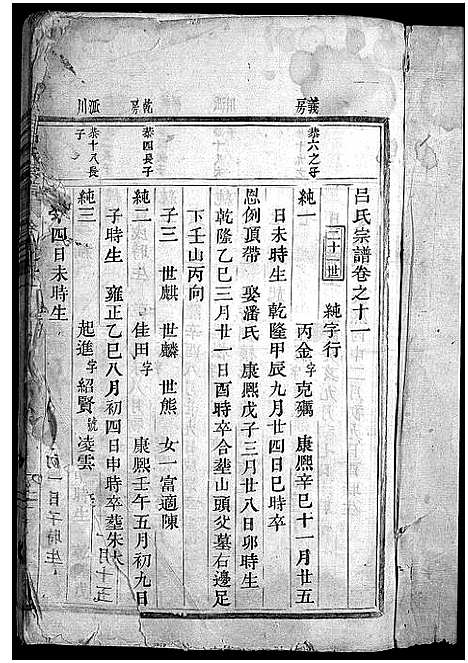 呂氏宗譜卷之十一
二十一世 純字行
義房
恭六之子
純一 丙金字克礪 康熙辛巳十一月廿五
日未時生 乾隆甲辰九月廿四日巳時卒
恩例頂帶 娶潘氏 康熙戊子三月廿八日卯時生
乾隆乙巳三月廿一日酉時卒合塟山頭父墓右邊足
下壬山丙向
子三 世麒 世麟 世熊 女一富適陳
乾房
恭四長子
純二 佳田字 康熙壬午五月初九日
子時生 雍正乙巳八月初四日申時卒塟朱大
派川
恭十八長子
純三 起進字紹賢號凌雲 月十五
四日未時生 初一日子時生